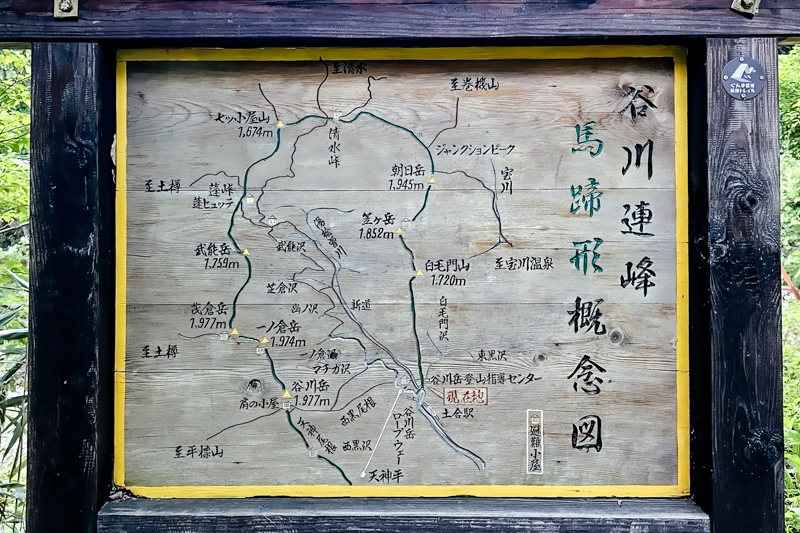 谷川連峰
馬蹄形概念図
ぐんま県境
稜線トレイル
至清水
至巻機山
七ッ小屋山
1,674m
清水峠
ジャンクションピーク
朝日岳
1,945m
宝川
至土樽
蓬峠
蓬ヒュッテ
笠ヶ岳
1.852m
湯桧曽川
武能沢
武能岳
1,759m
白毛門山
1.720m
至宝川温泉
芝倉沢
新道
幽ノ沢
白毛門沢
茂倉岳
1.977m
一ノ倉岳
1.974m
至土樽
一ノ倉沢
マチガ沢
東黒沢
谷川岳登山指導センター
現在地
土合駅
谷川岳
1.977m
肩の小屋
西黒尾根
西黒沢
天神尾根
谷川岳
ロープウェー
天神平
至平標山
避難小屋